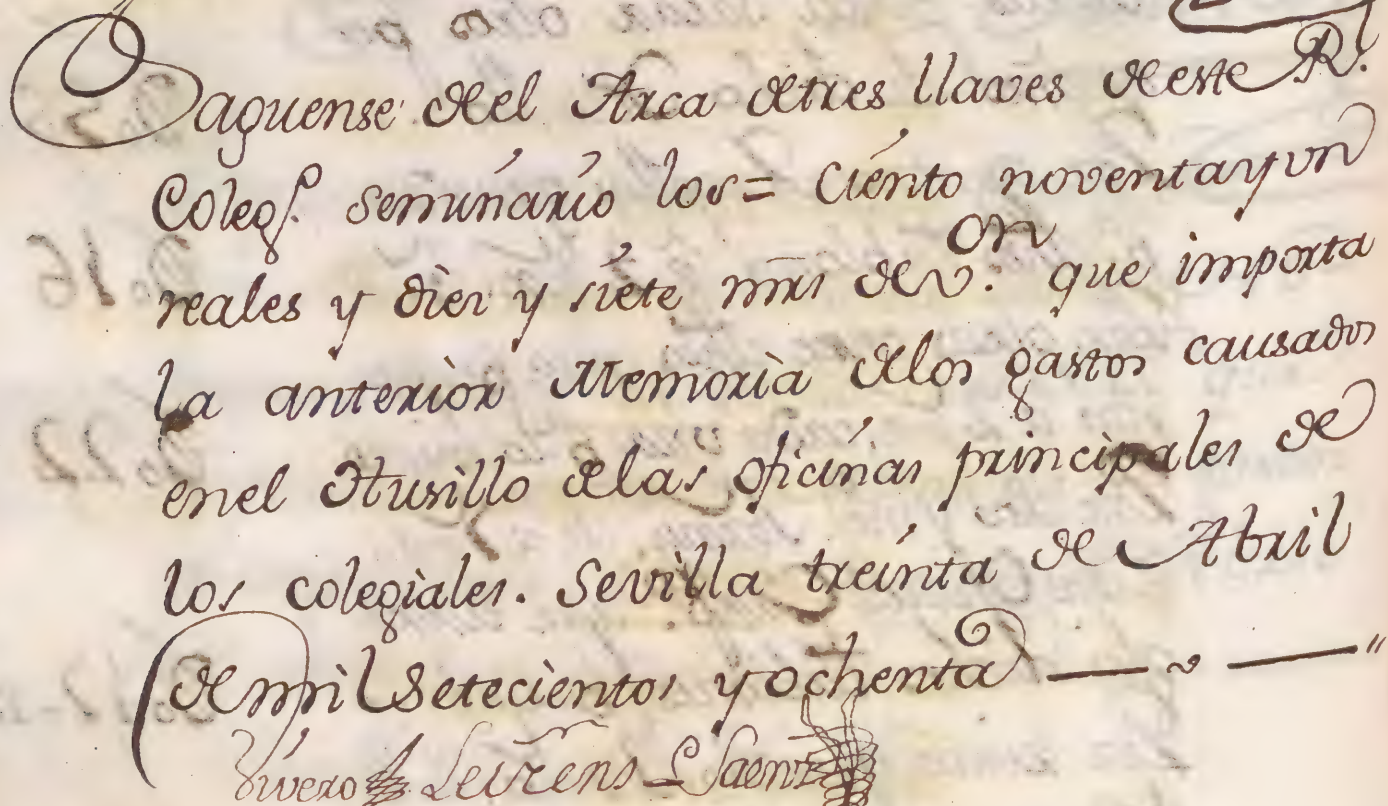 Saquense del Arca detres llaves deeste Rl.
Colegº. seminario los = Ciento noventayun
reales y diez y siete mrs de von. que importa
la anterior Memoria delos gastos causados
enel Husillo delas oficinas principales de
los colegiales. Sevilla treinta de Abril
de mil Setecientos yochenta
Vivero Leirens Saenz